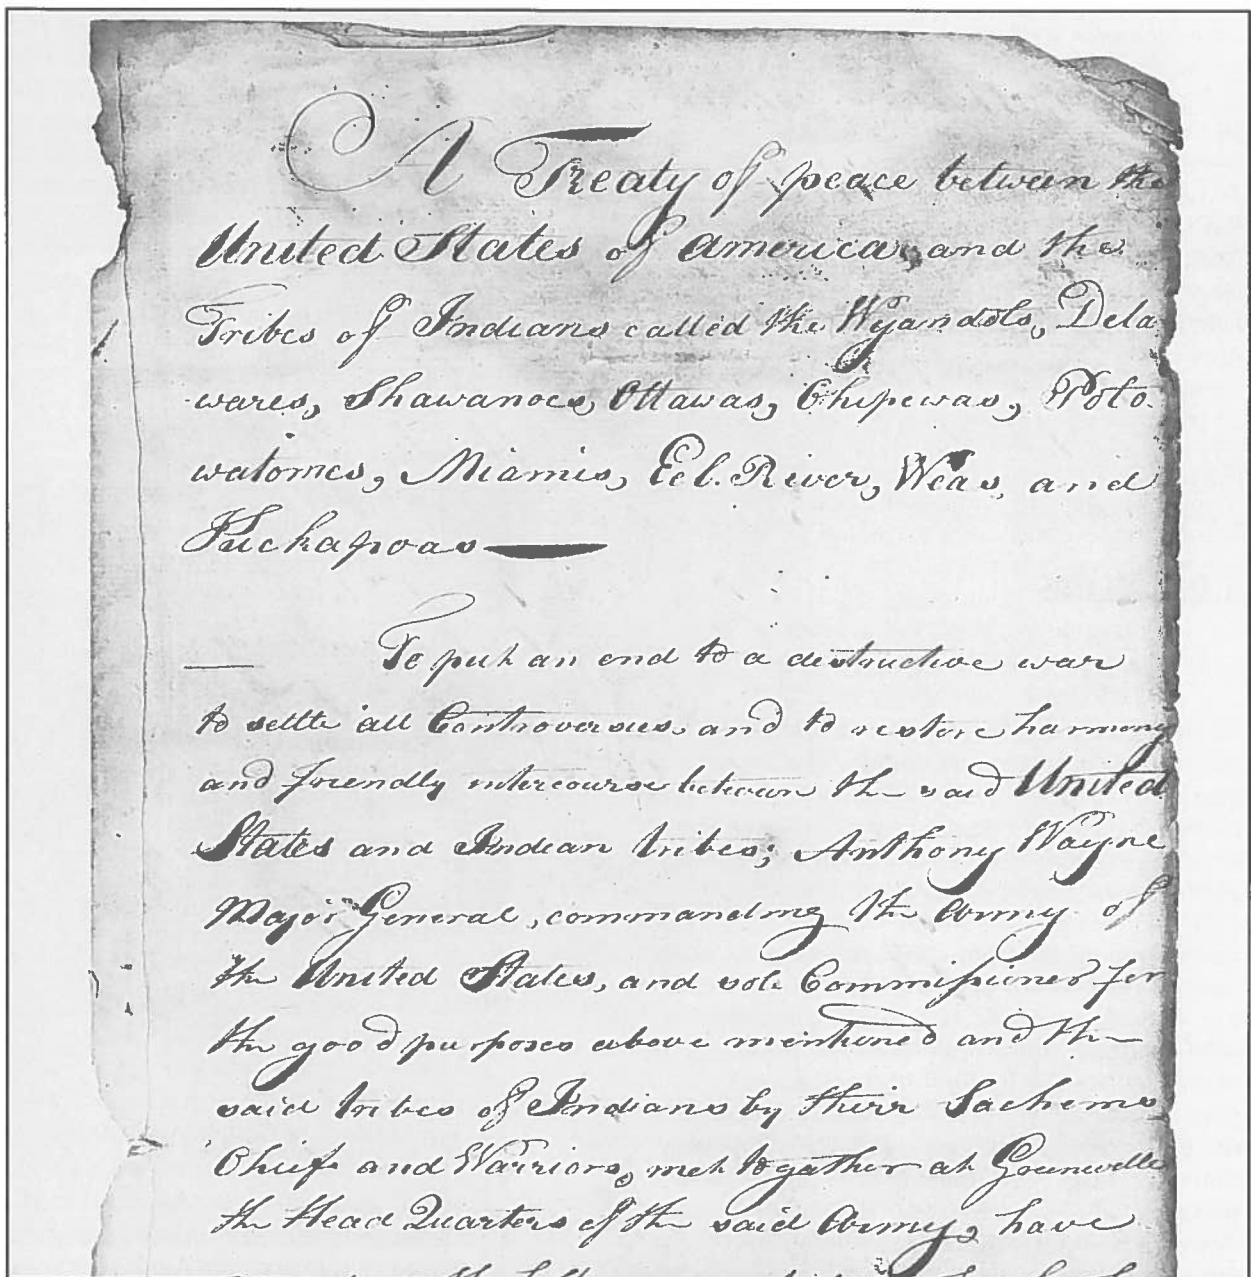 A Treaty of peace between the
United States of America, and the
Tribes of Indians called the Wyandots, Dela
wares, Shawanoes, Ottawas, Chipewas, Poto
watomes, Miamis, Eel. River, Weas, and
Kickapoas
To put an end to a destructive war
to settle all Controversies, and to restore harmony
and friendly intercourse between the said United
States and Indian tribes; Anthony Wayne
Major General, commanding the Army of
the United States, and sole Commissioner for
the good purposes above mentioned and the
said tribes of Indians by their Sachems
Chiefs and Warriors, met together at Greenville
the Head Quarters of the said Army, have